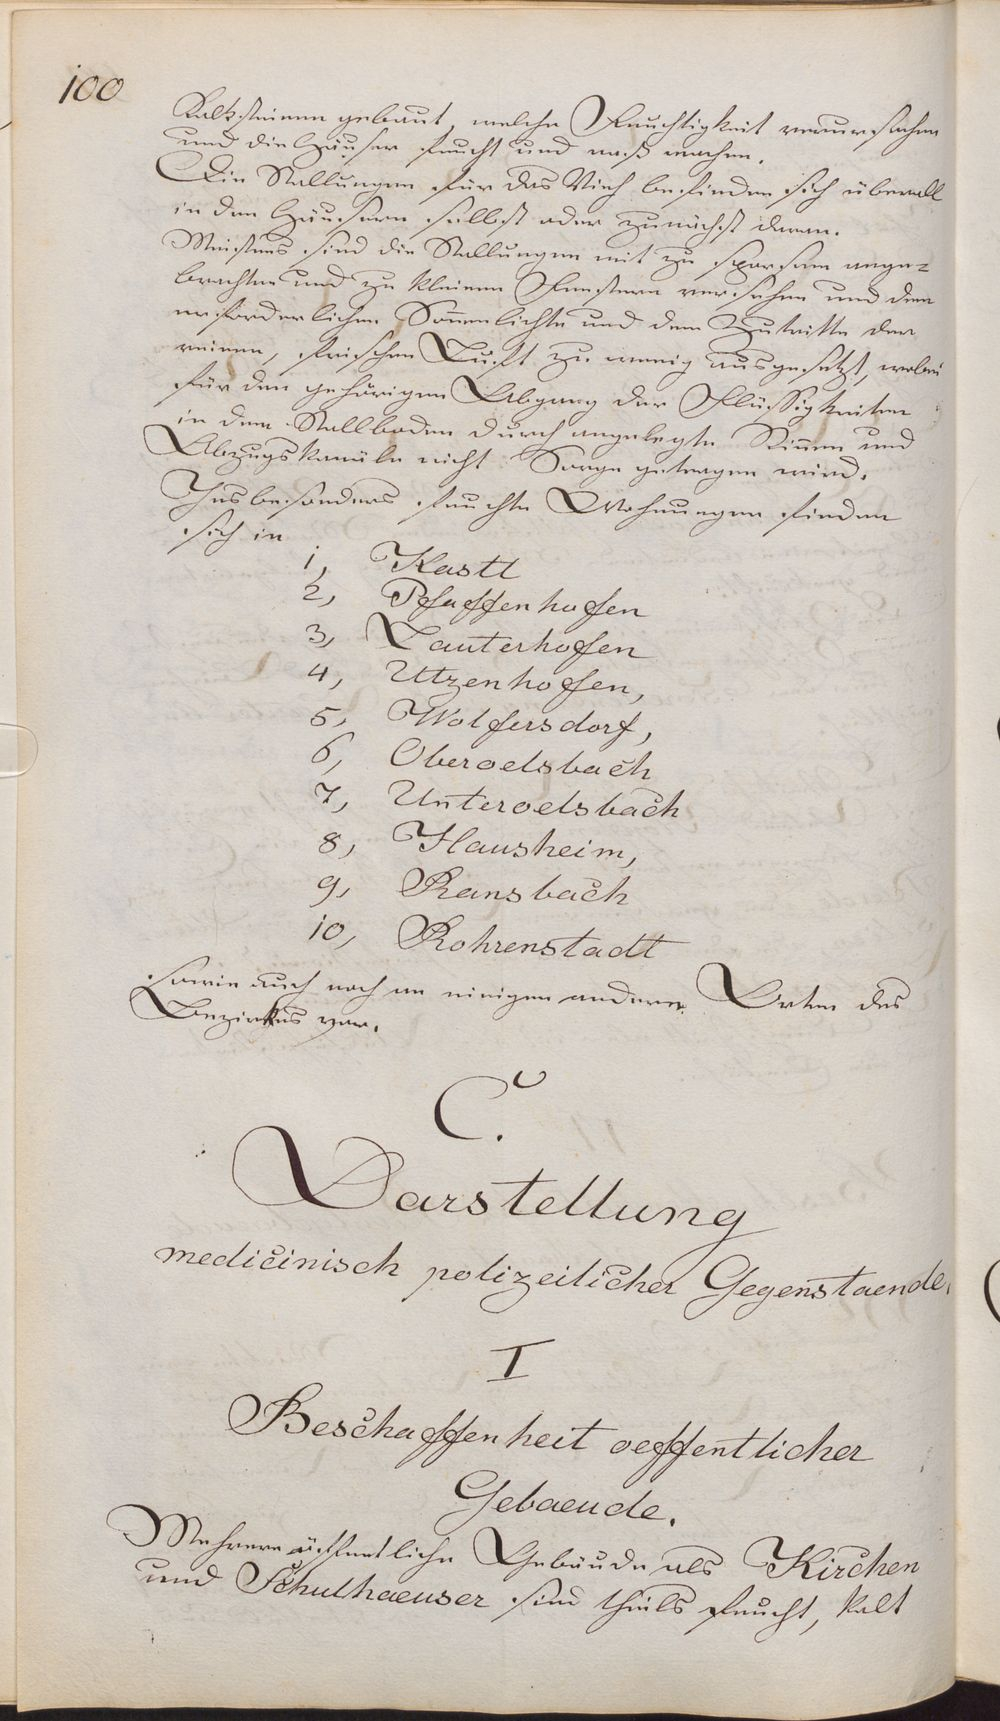 100
Kalksteinen gebaut, welche Feuchtigkeit verursachen
und die Häuser feucht und naß machen.
Die Stallungen für das Vieh befinden sich überall
in den Häusern selbst oder zunächst daran.
Meistens sind die Stallungen mit zu sparsam ange=
brachten und zu kleinen Fenstern versehen und dem
erforderlichen Sonnenlichte und dem Zutritte der
reinen, frischen Luft zu wenig ausgesetzt, wobei
für den gehörigen Abgang der Flüssigkeiten
in dem Stallboden durch angelegte Rinnen und
Abzugskanäle nicht Sorge getragen wird.
Insbesonders feuchte Wohnungen finden
sich in
1, Kastl
2, Pfaffenhofen
3, Lauterhofen
4, Utzenhofen,
5, Wolfersdorf,
6, Oberoelsbach
7, Unteroelsbach
8, Hausheim,
9, Ransbach
10, Rohrenstadt
sowie auch noch an einigen anderen Orten des
Bezirkes vor.
C.
Darstellung
medicinisch polizeilicher Gegenstaende.
I
Beschaffenheit oeffentlicher
Gebaeude.
Mehrere öffentliche Gebäude als Kirchen
und Schulhaeuser sind theils feucht, kalt